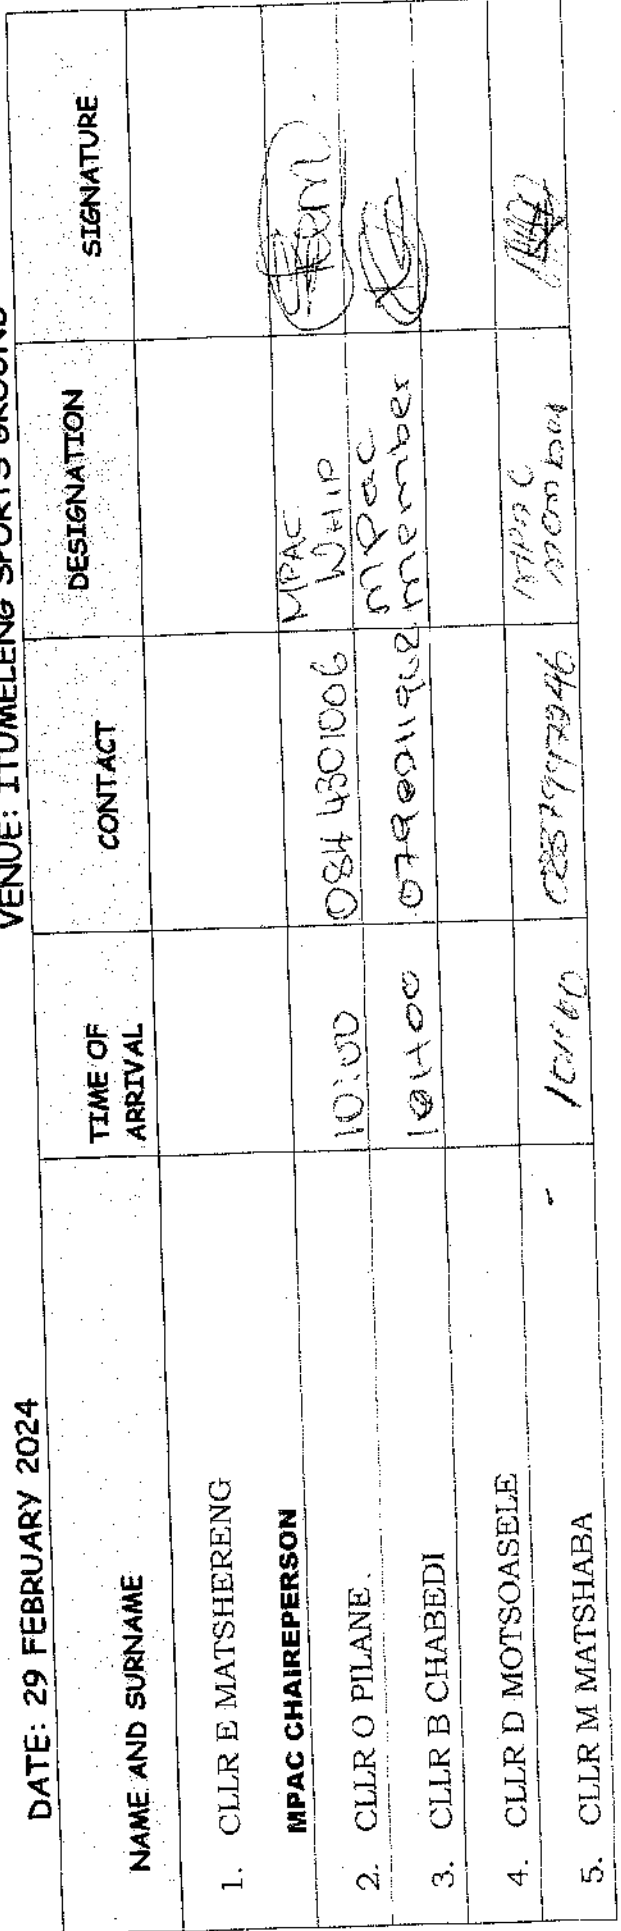 DATE: 29 FEBRUARY 2024 VENUE: ITUMELENG SPORTS GROUND
NAME AND SURNAME TIME OF ARRIVAL CONTACT DESIGNATION SIGNATURE
1. CLLR E MATSHERENG
MPAC CHAIREPERSON
2. CLLR O PILANE. 10:00 084 4301006 MPAC WHIP
3. CLLR B CHABEDI 10H00 MPac member
4. CLLR D MOTSOASELE
5. CLLR M MATSHABA MPAC member